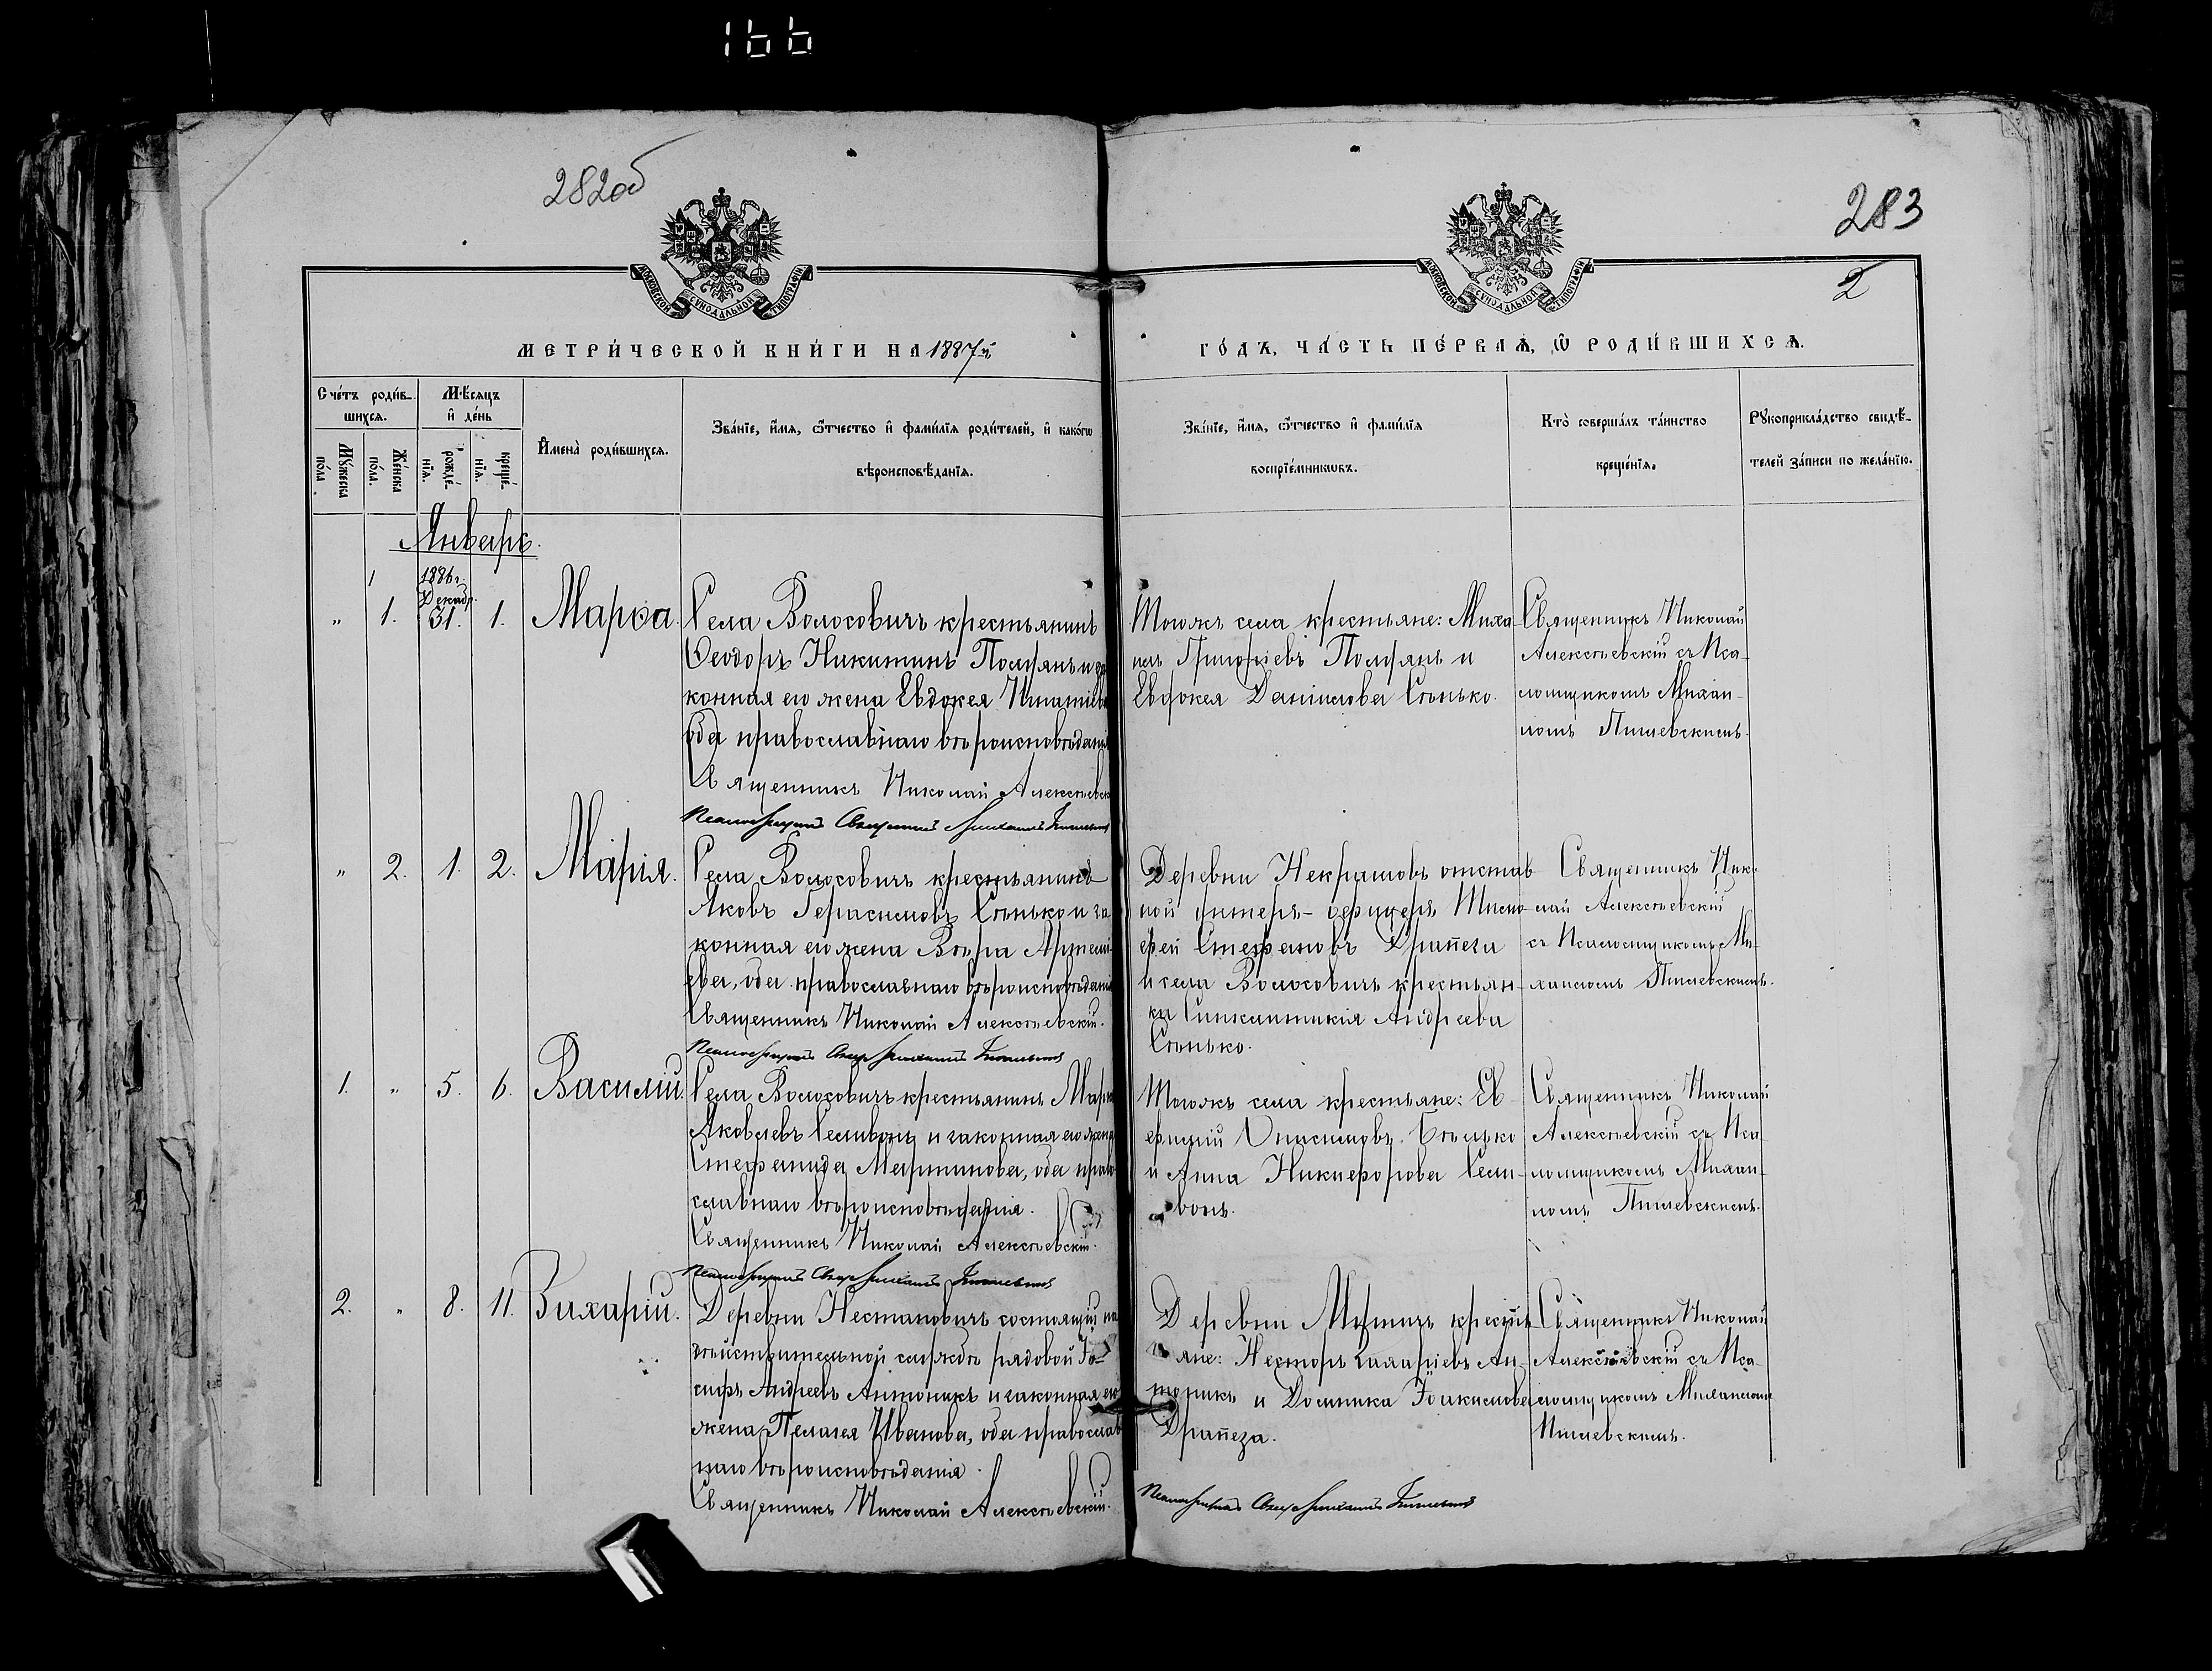 166
282об
283
2
МОСКОВСКОЙ СѴНОДАЛЬНОЙ ТИПОГРАФІИ
МОСКОВСКОЙ СѴНОДАЛЬНОЙ ТИПОГРАФІИ
МЕТРИ́ЧЕСКОЙ КНИ́ГИ НА 1887й
ГО́ДЪ, ЧА́СТЬ ПЕ́РВАѦ, Ѡ РОДИ́ВШИХСѦ.
Сче́тъ роди́в-
шихся.
Мꙋ́жеска по́ла.
Же́нска по́ла.
Мѣ́сяцъ
и҆ де́нь
рожде́-
нїя.
креще́-
нїя.
И҆мена̀ роди́вшихся.
Зва́нїе, и҆́мя, ѻ҆́тчество и҆ фами́лїя роди́телей, и҆ како́гѡ
вѣроисповѣ́данїя.
Зва́нїе, и҆́мя, ѻ҆́тчество и҆ фами́лїя
воспрїе́мникѡвъ.
Кто̀ соверша́лъ та́инство
креще́нїя.
Рꙋкоприкла́дство свидѣ́-
телей за́писи по жела́нїю.
Январь.
1886г.
Декабр.
" 1. 31. 1. Марѳа.
Села Волосовичъ крестьянинъ
Ѳеодоръ Никитинъ Полуянъ и за
конная его жена Евдокея Игнатіева
оба православнаго вѣроисповѣданія
Священникъ Николай Алексѣевск
Псаломщикъ Михаилъ
Тогожъ села крестьяне: Миха
илъ Григоріевъ Полуянъ и
Евдокея Даніилова Сѣнько.
Священникъ Николай
Алексѣевскій съ Пса-
ломщикомъ Михаи-
ломъ Пигулевскимъ.
" 2. 1. 2. Марія.
Села Волосовичъ крестьянинъ
Яковъ Герасимовъ Сѣнько и за
конная его жена Вѣра Артемі-
ева, оба православнаго вѣроисповѣданія
Священникъ Николай Алексѣевскій.
Псаломщикъ Михаилъ
Деревни Некрашовъ отстав
ной унтеръ-офицеръ Тимо
фей Стефановъ Драпеза
и села Волосовичъ крестьян-
ка Синклитикія Андреева
Сѣнько.
Священникъ Нико
лай Алексѣевскій
съ Псаломщикомъ Ми-
хаиломъ Пигулевскимъ.
1. " 5. 6. Василій.
Села Волосовичъ крестьянинъ Марко
Яковлевъ Селивонъ и законная его жена
Стефанида Мартинова, оба право
славнаго вѣроисповѣданія.
Священникъ Николай Алексѣевскій.
Псаломщикъ Михаилъ
Тогожъ села крестьяне: Ев-
фимій Онисимовъ Сѣнько
и Анна Никифорова Сели-
вонъ.
Священникъ Николай
Алексѣевскій съ Пса-
ломщикомъ Михаи-
ломъ Пигулевскимъ.
2. " 8. 11. Захарій.
Деревни Нестановичъ состоящій на
дѣйствительной службѣ рядовой Іо-
сифъ Андреевъ Антоникъ и законная его
жена Пелагея Иванова, оба православ
наго вѣроисповѣданія.
Священникъ Николай Алексѣевскій.
Деревни крестья
яне: Несторъ Ан-
тоникъ и Домника Іоакимова
Драпеза.
Псаломщикъ Михаилъ
Священникъ Николай
Алексѣевскій съ Пса-
ломщикомъ Михаиломъ
Пигулевскимъ.